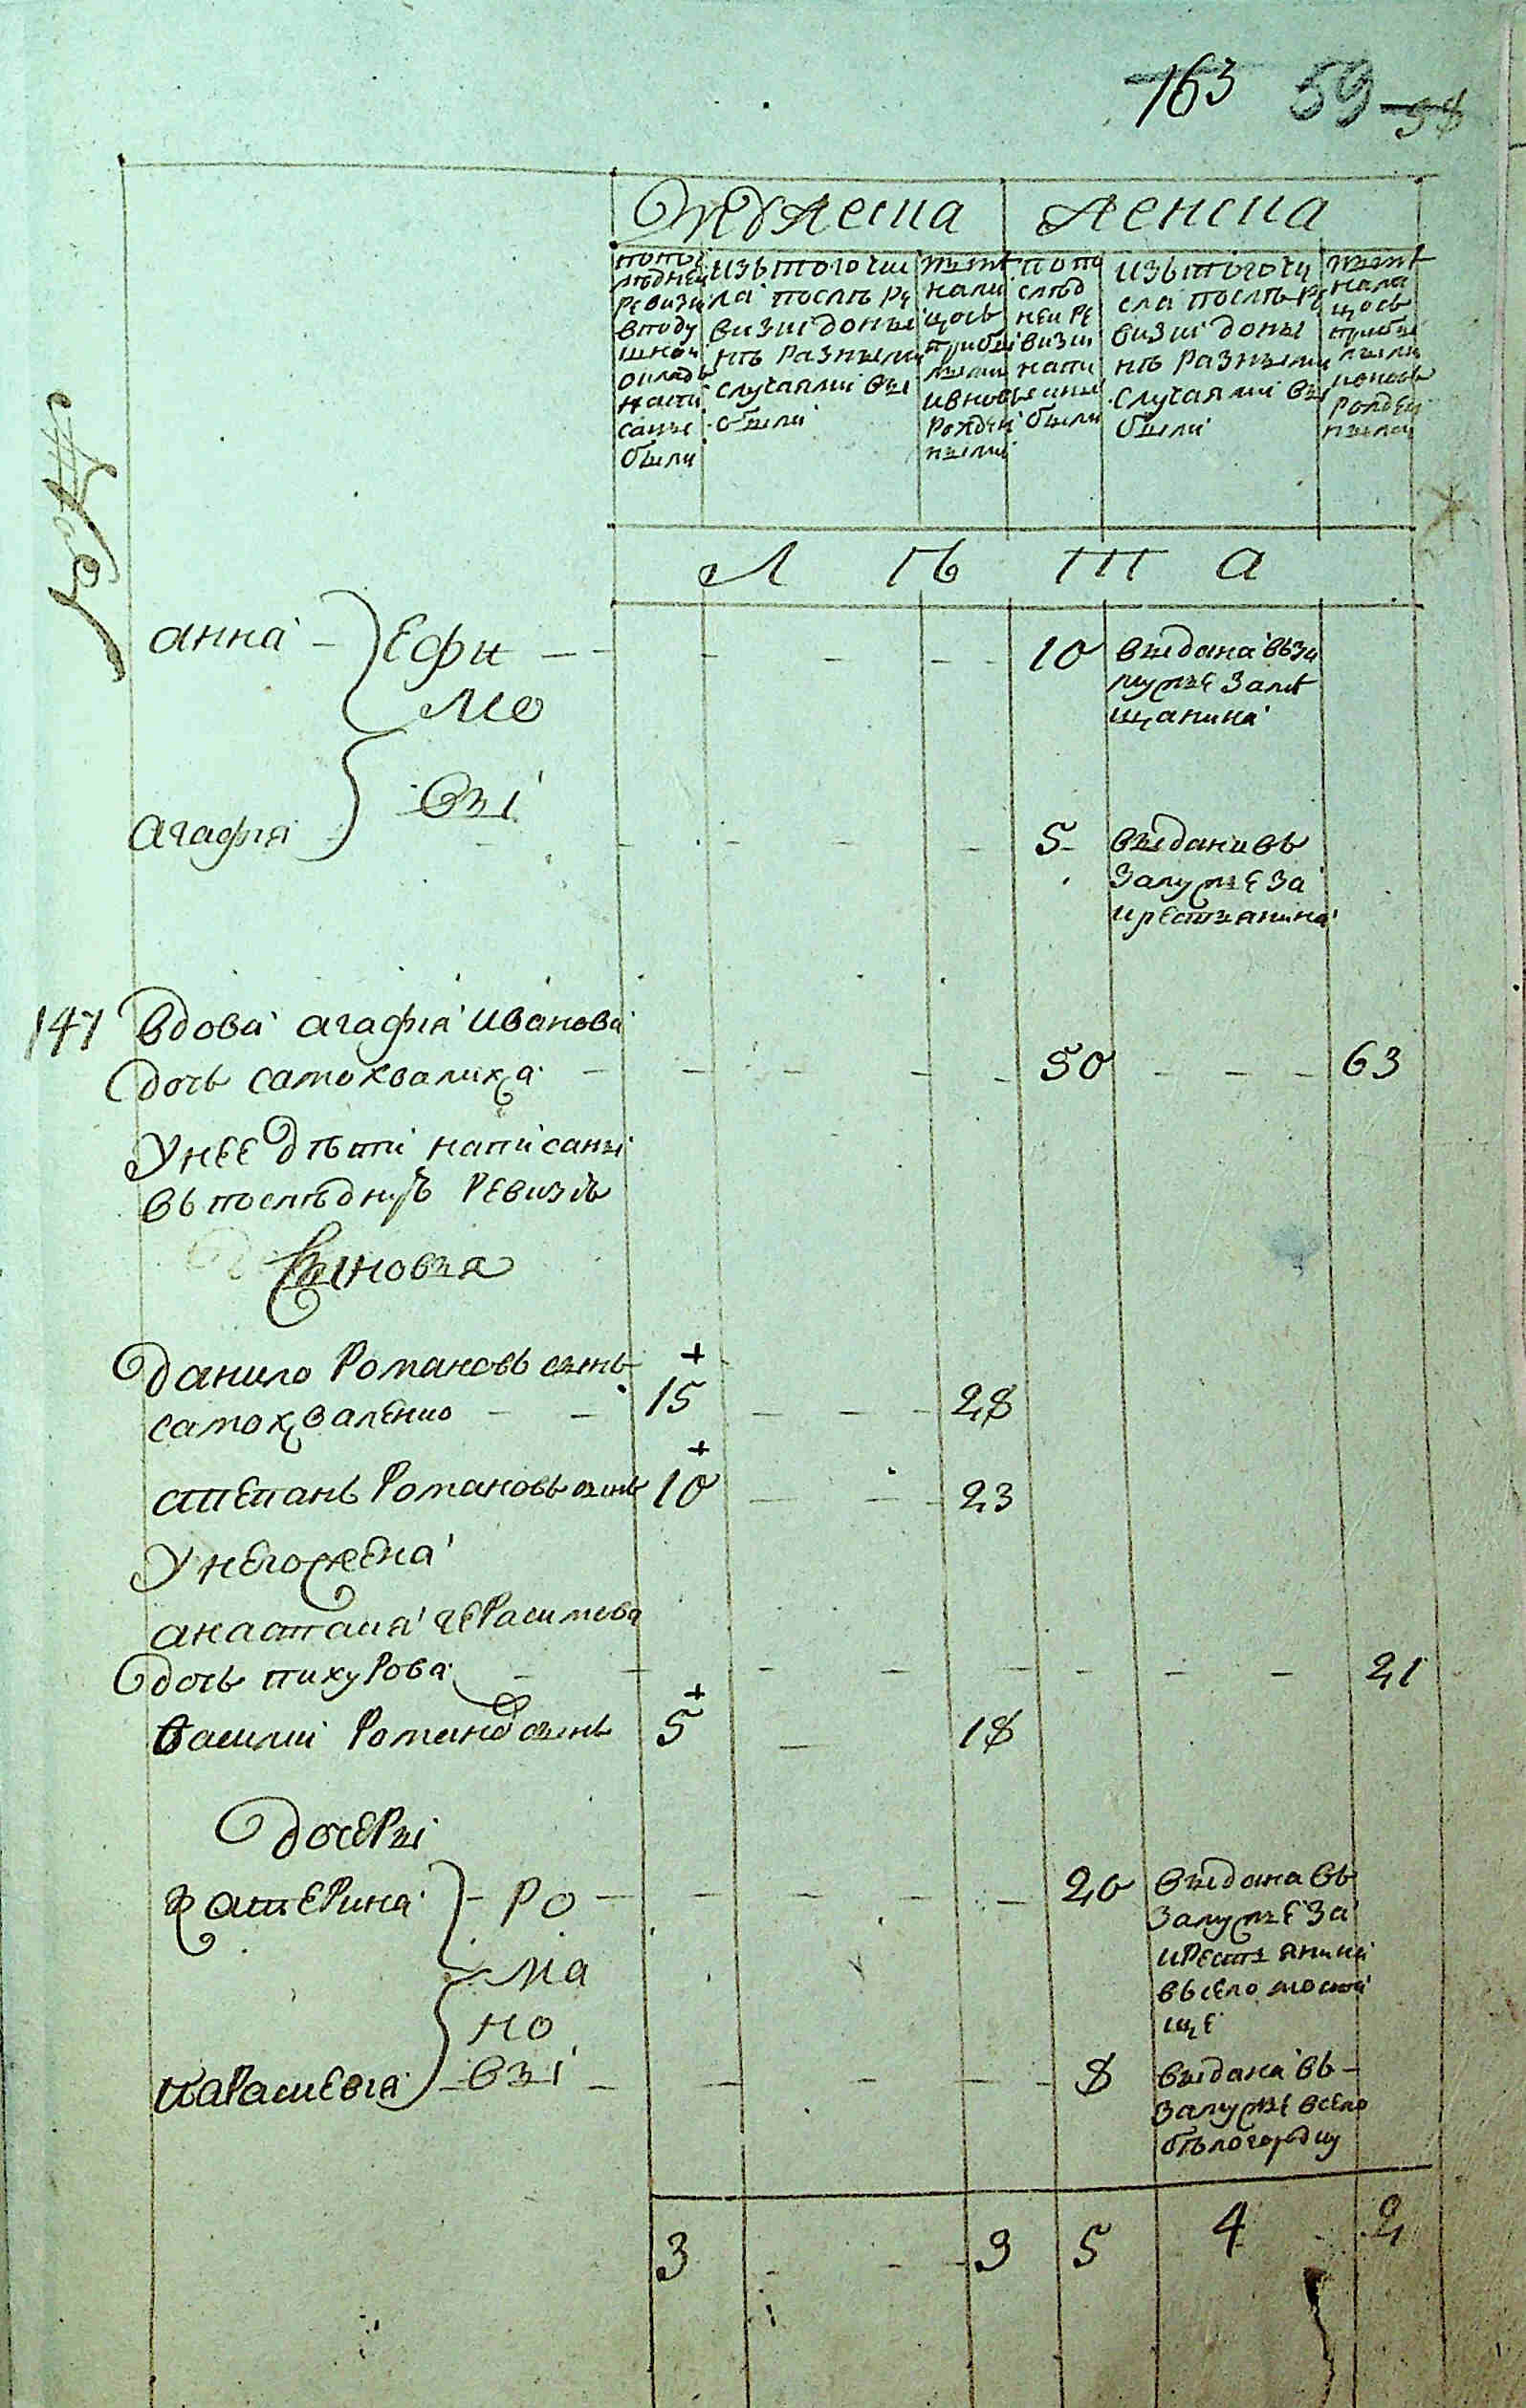 163 59 58
Мужеска женска
по последней ревизии в подушной окладъ написаны были
изъ того числа послѣ ревизии до ныне разными случаями выбыли
нынѣ на лицо съ прибылыми и вновь рожденными
по последней ревизии написаны были
изъ того числа послѣ ревизии до ныне разными случаями выбыли
нынѣ на лицо съ прибылыми и вновь рожденными
Л ѣ т а
анна – Ефи – – – – – – 10 выдана въ за
мо мужъе за мѣ
щанина
вы
агафия – – – – – 5 – выдана въ
замужъе за
крестъянина
147 вдова агафия иванова
дочь самохвалиха – – – – – 50 – – – 63
У нее дѣти написаны
въ последнуѣ ревизиѣ
Сыновья
+
данило Романовъ сынъ
самохваленко – – 15 – – – 28
+
степанъ Романовъ сынъ 10 – – – 23
У него жена
анастасия герасимова
дочь пихурова – – – – – – – – 21
+
василий Романов сынъ 5 – 18
дочеры
катерина – Ро – – – – – 20 выдана въ
ма замужъе за
но крестъянина
въ село мости
ще
парасковия – вы – – – – – 8 выдана въ –
замужъе в село
бѣлогородку
3 – – – 3 5 4 2